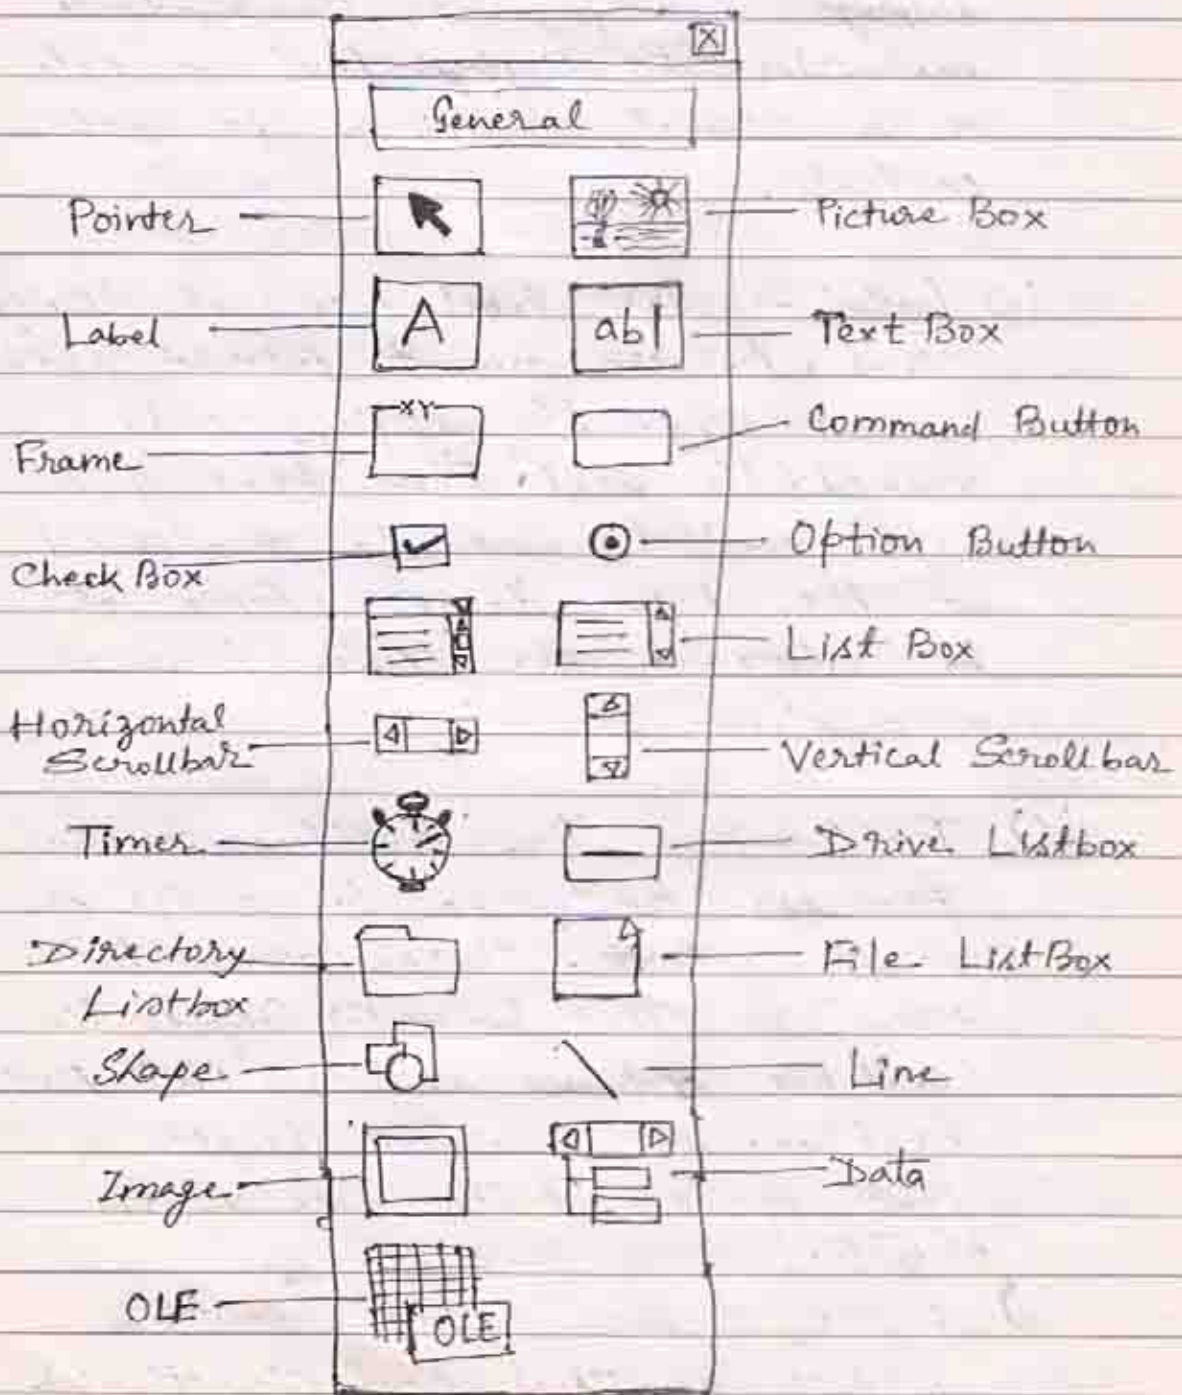 X
General
Pointer
Picture Box
Label
A
abl
Text Box
XY
Frame
Command Button
Check Box
Option Button
List Box
Horizontal
Scrollbar
Vertical Scrollbar
Timer
Drive Listbox
Directory
Listbox
File ListBox
Shape
Line
Image
Data
OLE
OLE